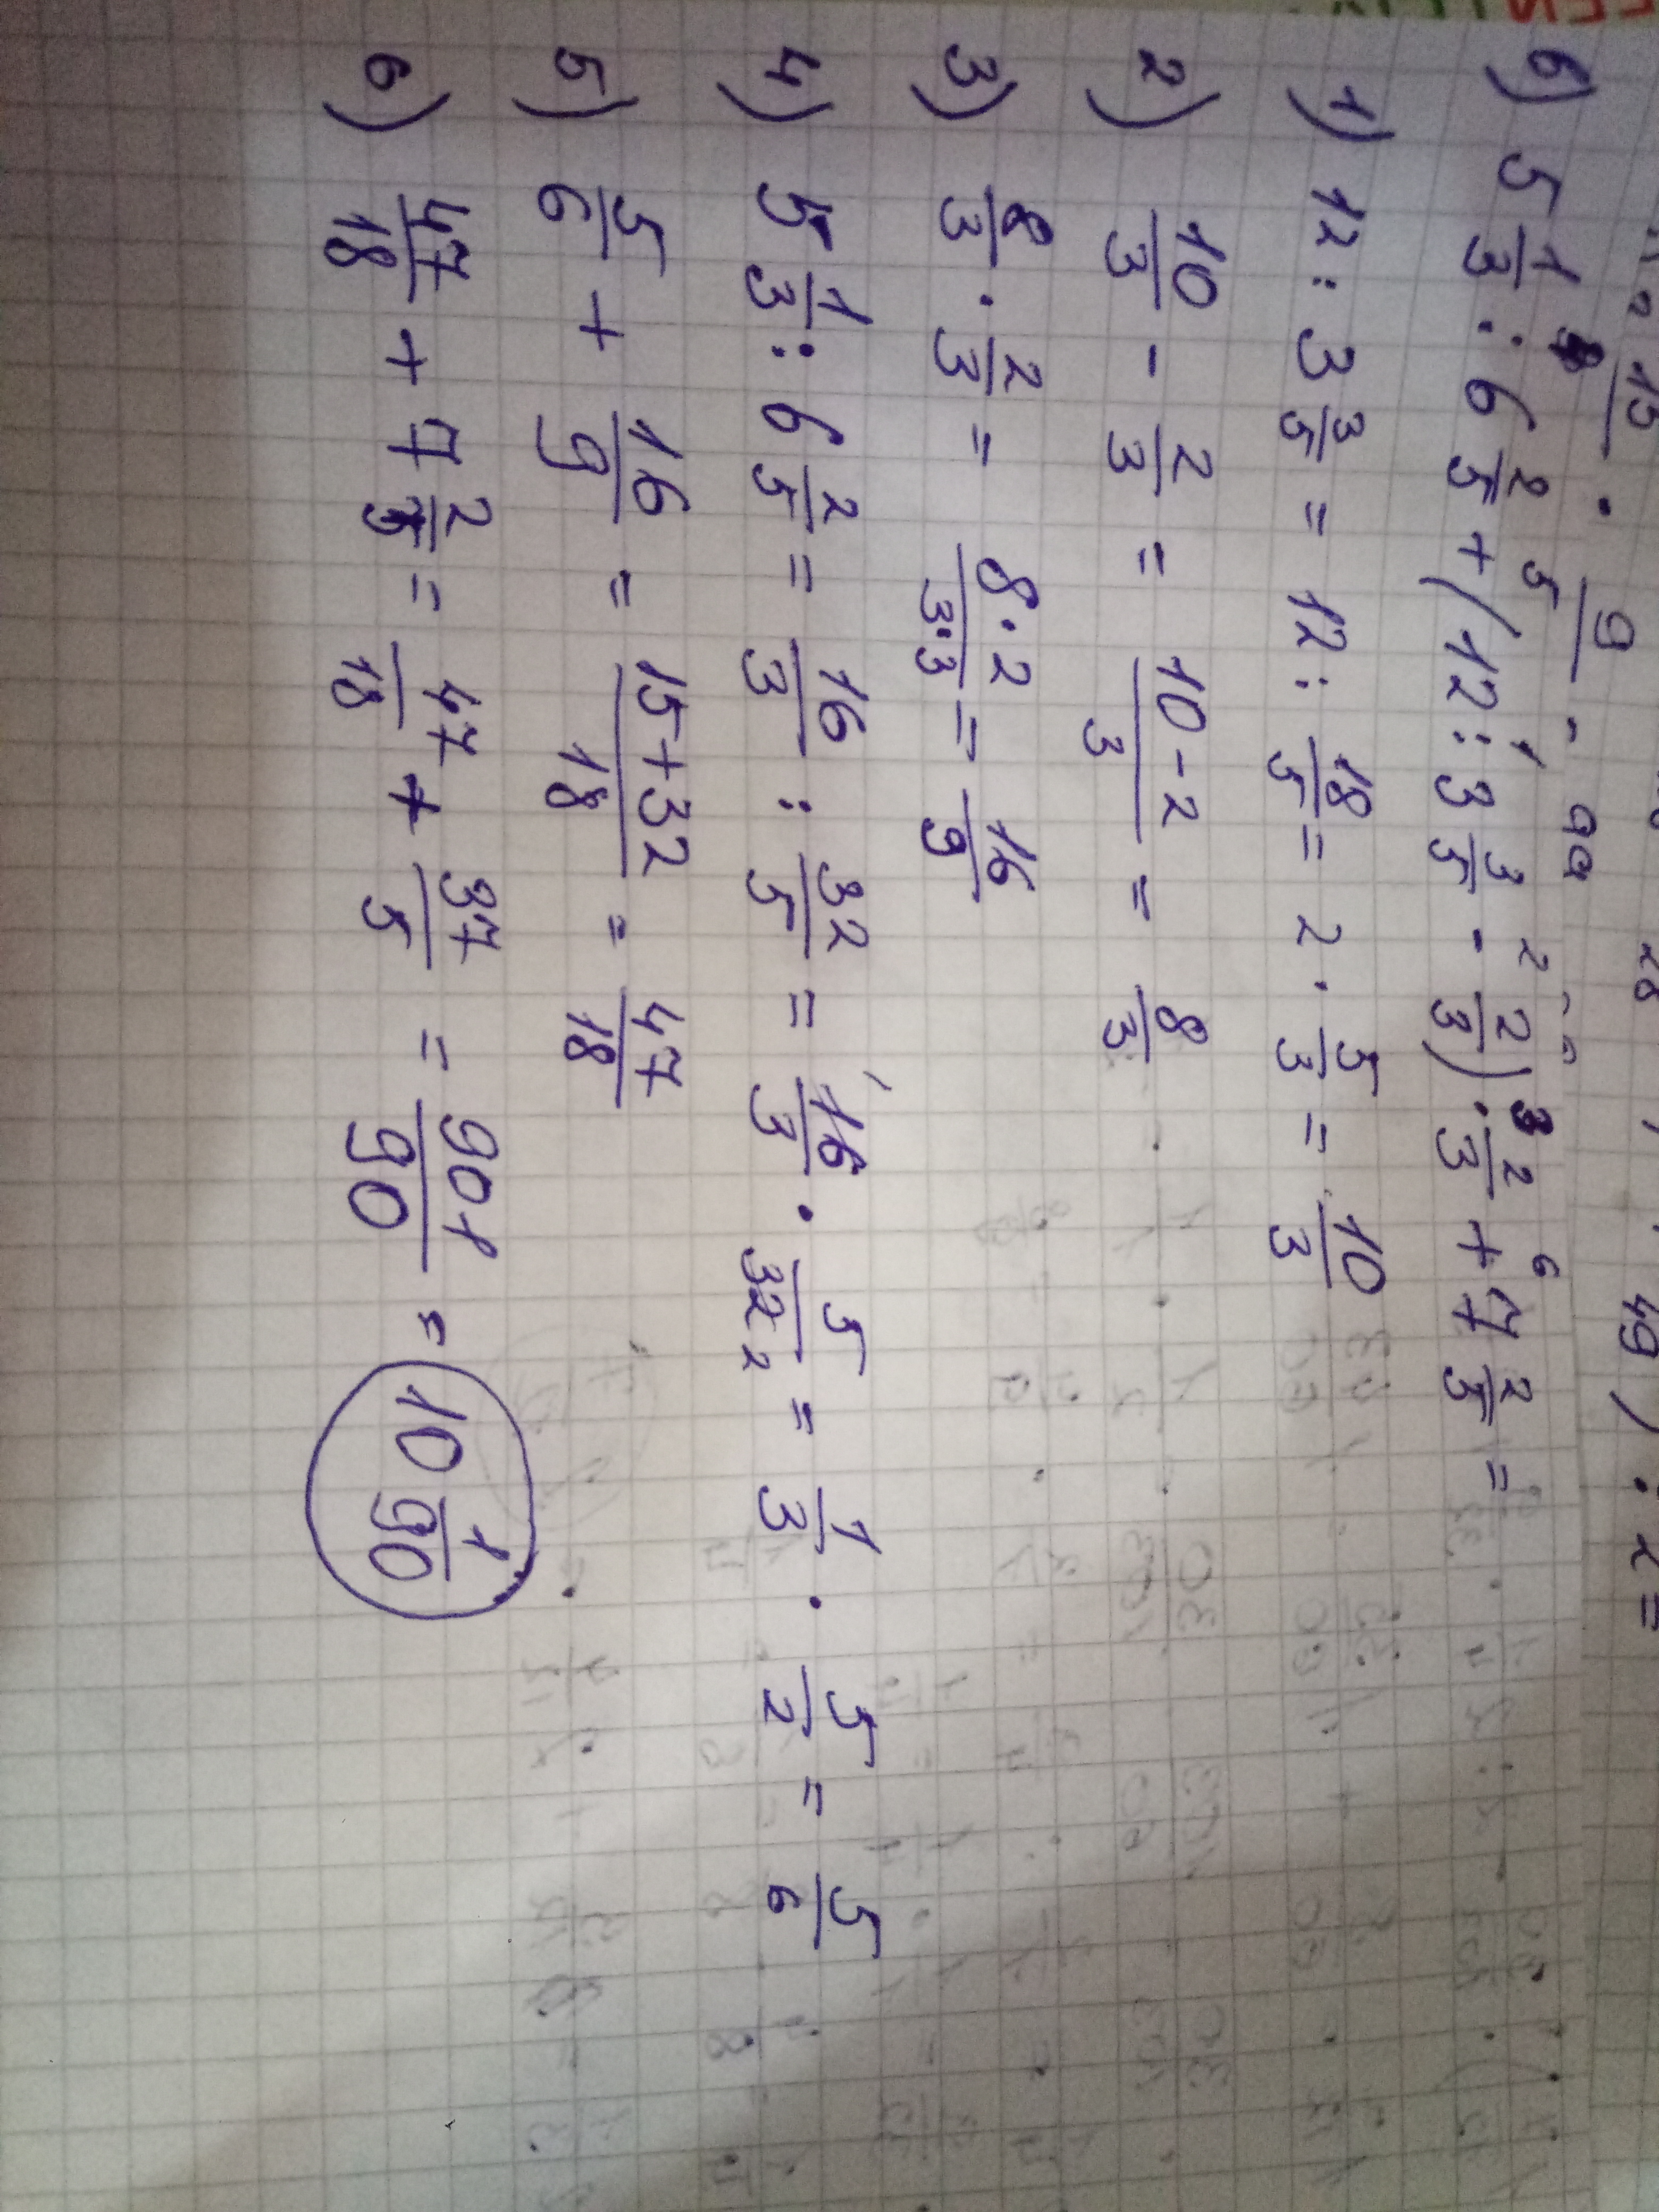 6) 5 1/3 : 6 2/5 + (12 : 3 3/5 - 2/3) · 2/3 + 7 2/5 =
1) 12 : 3 3/5 = 12 : 18/5 = 2 · 5/3 = 10/3
2) 10/3 - 2/3 = 10-2/3 = 8/3
3) 8/3 · 2/3 = 8·2/3·3 = 16/9
4) 5 1/3 : 6 2/5 = 16/3 : 32/5 = 16/3 · 5/32 2 = 1/3 · 5/2 = 5/6
5) 5/6 + 16/9 = 15+32/18 = 47/18
6) 47/18 + 7 2/5 = 47/18 + 37/5 = 901/90 = 10 1/90